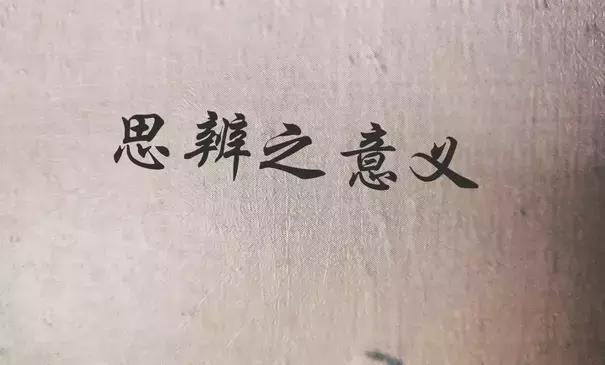 思辨之意义